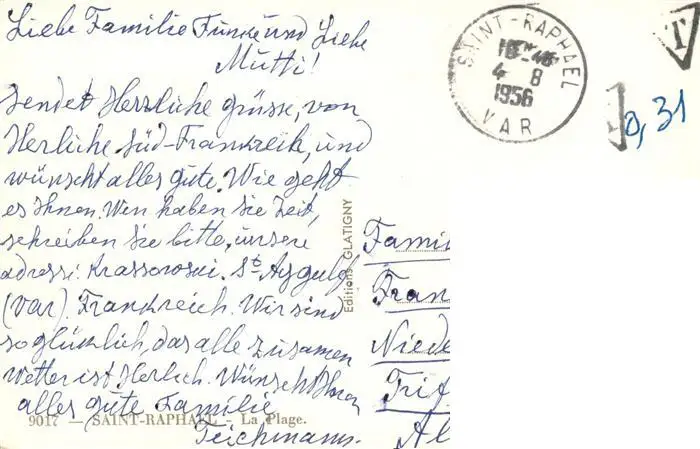 Liebe Familie Funke und Liebe
Mutti!
sendet Herzliche grüsse, von
Herliche süd-Frankreik, und
wünscht alles gute. Wie geht
es Ihnen. Wen haben Sie Zeit,
schreiben Sie bitte, unsere
adress: St Aygulf
(Var). Frankreich. Wir sind
so glücklich, das alle zusamen
Wetter ist Herlich. Wünscht Ihnen
alles gute Familie
Teichmann.
9017 — SAINT-RAPHAEL - La Plage.
Editions GLATIGNY
SAINT-RAPHAEL
4 8
1956
VAR
T
0,31
Famil
Fran
Niede
Al